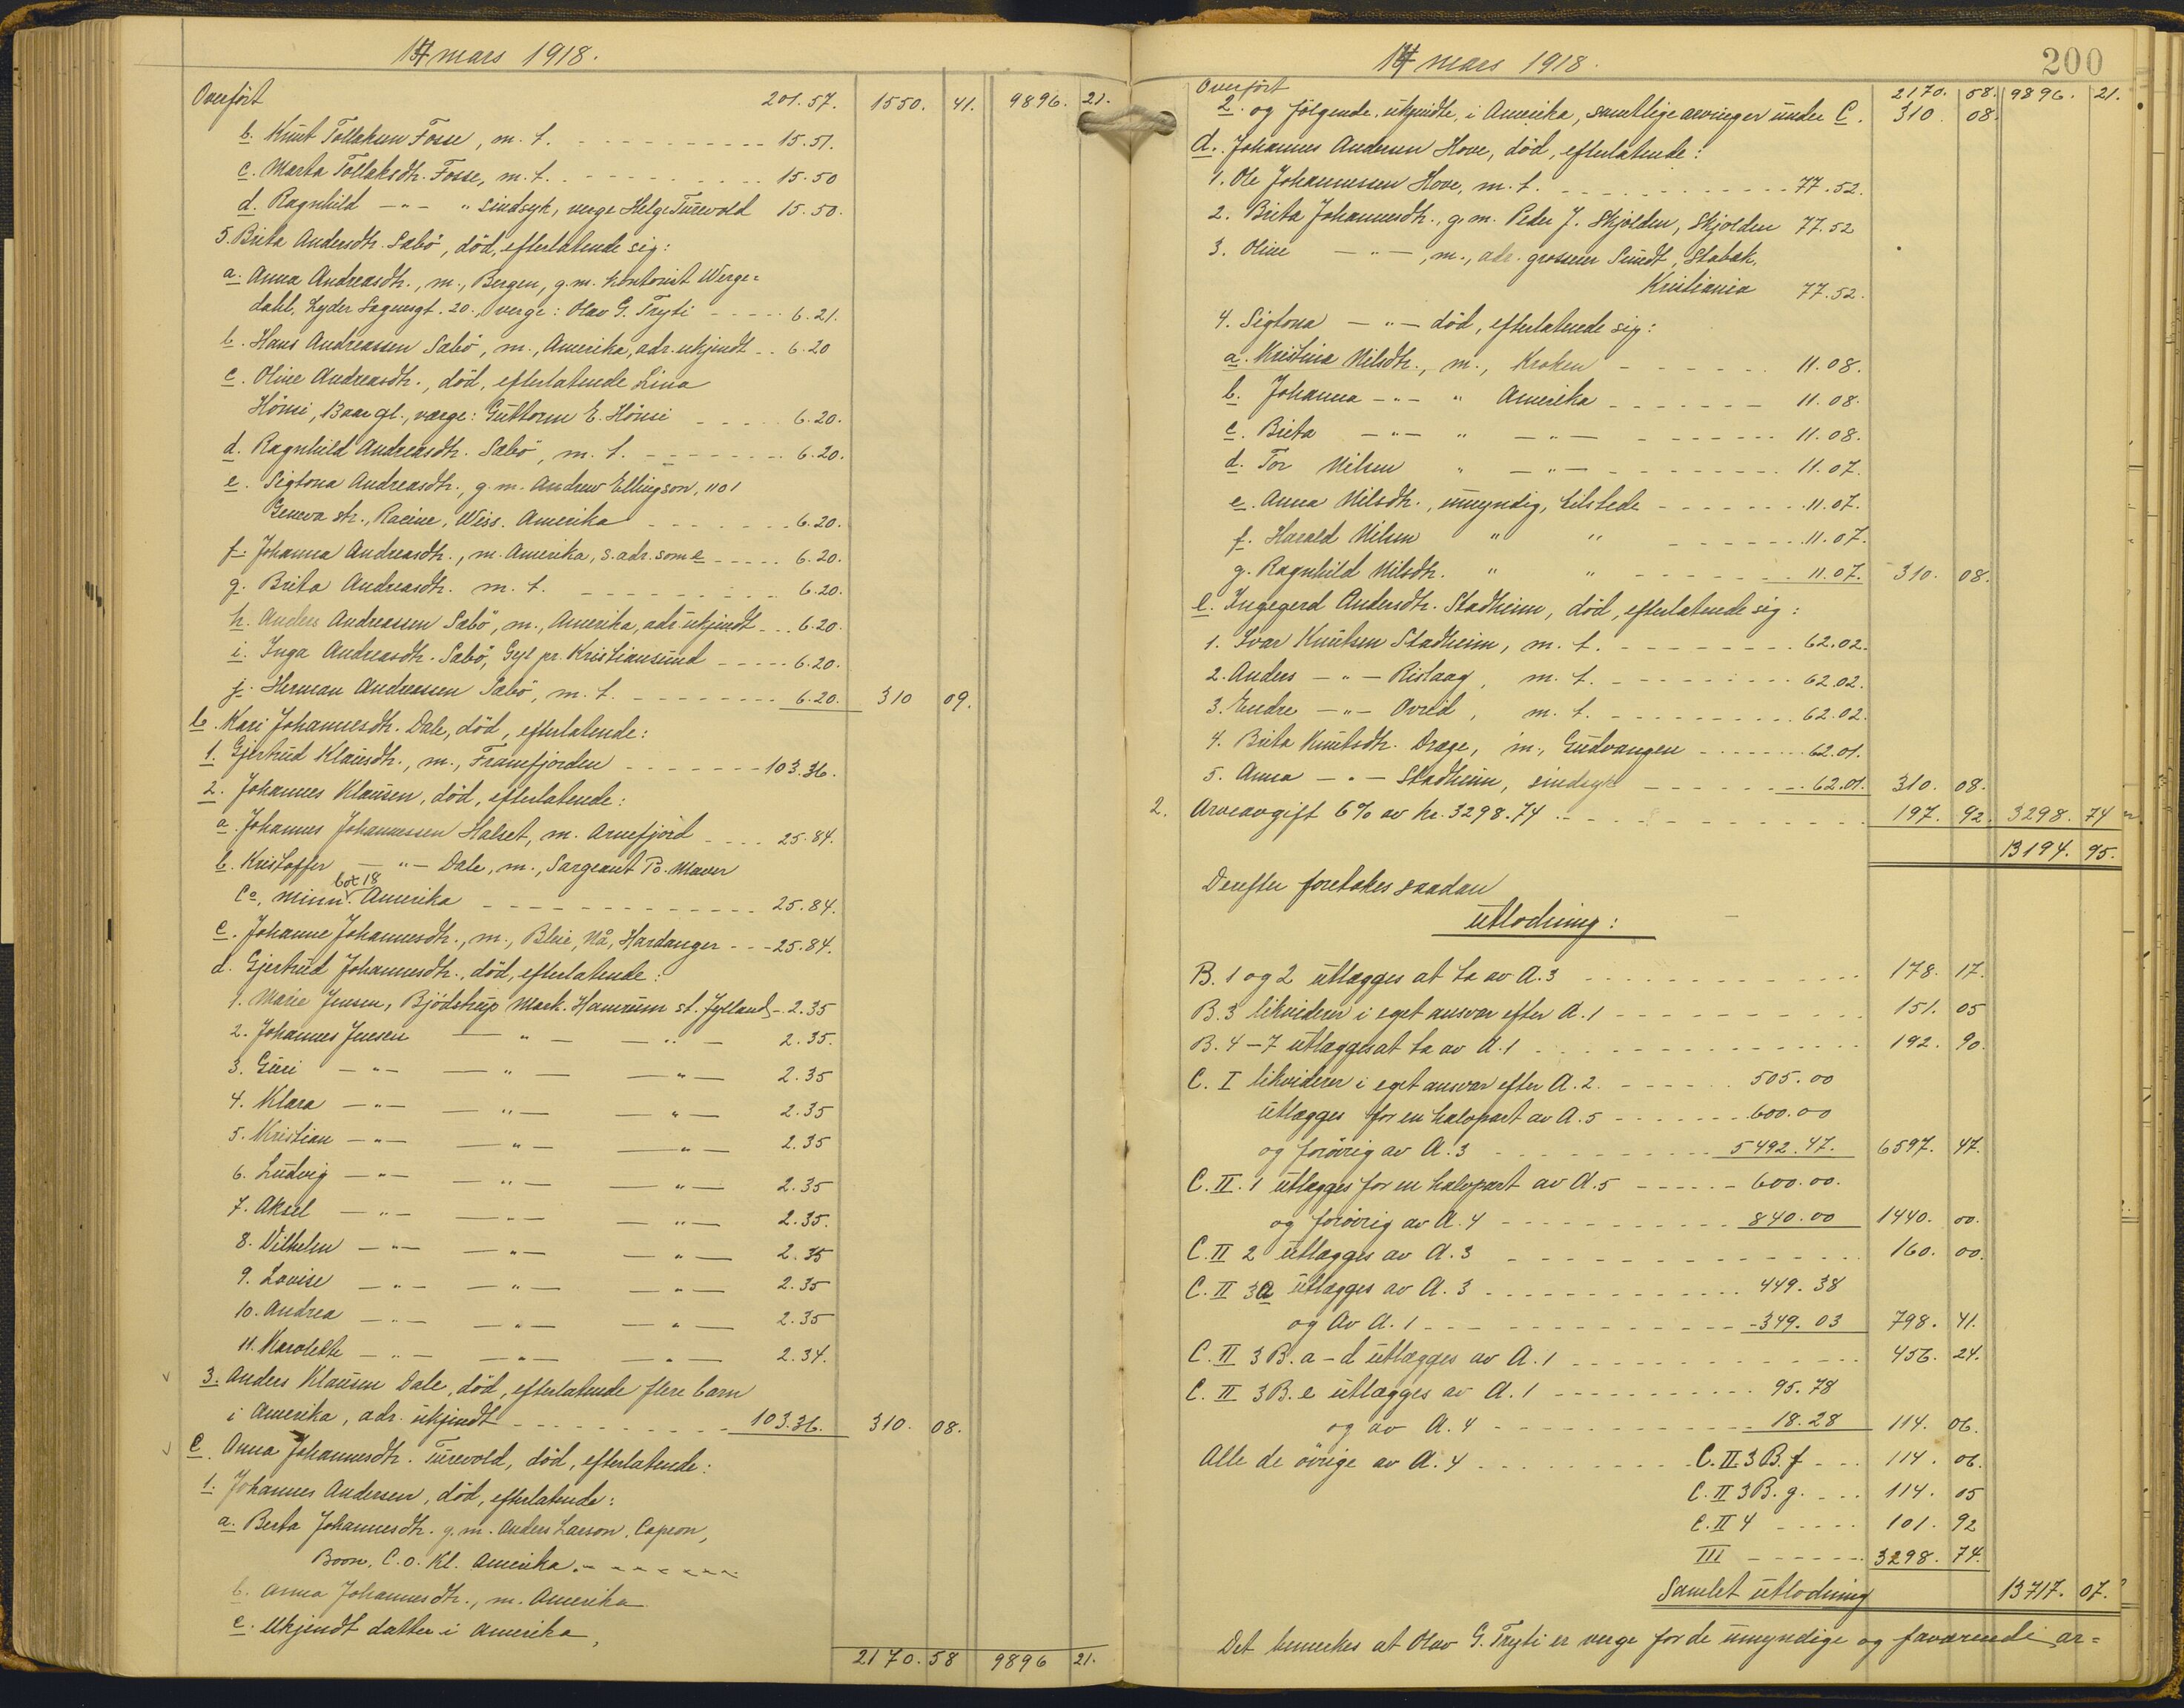 14 mars 1918.
Overført 201.57. 1550. 41. 9896. 21.
b. Knut Tollaksen Fosse, m. t. 15.51.
c. Marta Tollaksdtr. Fosse, m. t. 15.50
d. Ragnhild — " — " sindsyk, verge Helge Turvold 15.50.
5. Brita Andersdtr. Sabö, död, efterlatende sig:
a. Anna Andreasdtr., m., Bergen, g. m. kontorist Werge=
dahl, Lyder Sagensgt. 20., verge: Olav G. Tryti 6.21.
b. Hans Andreassen Sabö, m., Amerika, adr. ukjendt 6.20
c. Oline Andreasdtr., död, efterlatende Lina
Hönsi, 13 aar gl., værge: Guttorm E. Hönsi 6.20.
d. Ragnhild Andreasdtr. Sabö, m. t. 6.20.
e. Sigtona Andreasdtr., g. m. Andrew Ellingson, 1101
Geneva str., Racine, Wiss. Amerika 6.20.
f. Johanna Andreasdtr., m. Amerika, s. adr. som e 6.20.
g. Brita Andreasdtr. m. t. 6.20.
h. Anders Andreassen Sabö, m., Amerika, adr. ukjendt 6.20.
i. Inga Andreasdtr. Sabö, Gyl pr. Kristiansund 6.20.
j. Herman Andreassen Sabö, m. t. 6.20. 310 09.
b. Kari Johannesdtr. Dale, död, efterlatende:
1. Gjertrud Klausdtr., m., Framfjorden 103.36.
2. Johannes Klausen, död, efterlatende:
a. Johannes Johannessen Halset, m. Arnefjord 25.84.
b. Kristoffer — " — Dale, m., Sargeant Po. Maver
Co, Minn. box 18 Amerika 25.84.
c. Johanne Johannesdtr., m., Bleie, Nå, Hardanger 25.84.
d. Gjertrud Johannesdtr., död, efterlatende:
1. Marie Jensen, Bjödstrup Mark. Hamrum st. Jylland 2.35
2. Johannes Jensen — " — — " — 2.35.
3. Guri — " — — " — — " — 2.35
4. Klara — " — — " — — " — 2.35
5. Kristian — " — — " — — " — 2.35
6. Ludvig — " — — " — — " — 2.35
7. Aksel — " — — " — — " — 2.35.
8. Vilhelm — " — — " — — " — 2.35
9. Lovise — " — — " — — " — 2.35
10. Andrea — " — — " — — " — 2.35
11. Karolette — " — — " — — " — 2.34.
3. Anders Klausen Dale, död, efterlatende flere barn
i Amerika, adr. ukjendt 103.36. 310. 08.
c. Anna Johannesdtr. Turvold, död, efterlatende:
1. Johannes Andersen, död, efterlatende:
a. Berta Johannesdtr. g. m. Anders Larson, Capron,
Boon, C.o. Kl. Amerika.
b. Anna Johannesdtr., m. Amerika
c. Ukjendt datter i Amerika,
2170.58 9896 21.
14 mars 1918.
200
Overført 2170. 58. 9896. 21.
2. og følgende, ukjendte, i Amerika, samtlige arvinger under C. 310. 08.
d. Johannes Andersen Hove, död, efterlatende:
1. Ole Johannessen Hove, m. t. 77.52.
2. Brita Johannesdtr., g. m. Peder J. Skjolden, Skjolden 77.52
3. Oline — " —, m., adr. grosserer Sundt, Stabæk,
Kristiania 77.52.
4. Sigtona — " — död, efterlatende sig:
a. Kristina Nilsdtr., m., Kroken 11.08.
b. Johanna — " — " Amerika 11.08.
c. Brita — " — " — " — 11.08.
d. Tor Nilsen " — " — 11.07.
e. Anna Nilsdtr., umyndig, tilstede 11.07.
f. Harald Nilsen " " 11.07.
g. Ragnhild Nilsdtr. " " 11.07. 310. 08.
e. Ingegerd Andersdtr. Stadheim, död, efterlatende sig:
1. Ivar Knutsen Stadheim, m. t. 62.02.
2. Anders — " — Rislaag, m. t. 62.02.
3. Endre — " — Ovrid, m. t. 62.02.
4. Brita Knutsdtr. Drage, m., Gudvangen 62.01.
5. Anna — " — Stadheim, sindsyk 62.01. 310. 08.
2. Arveavgift 6% av kr. 3298.74 197. 92. 3298. 74
13194. 95.
Derefter foretakes saadan
utlodning:
B. 1 og 2 utlægges at ta av A. 3 178. 17.
B. 3 likviderer i eget ansvar efter A. 1 151. 05
B. 4 – 7 utlægges at ta av A. 1 192. 90.
C. I likviderer i eget ansvar efter A. 2. 505.00
utlægges for en halvpart av A. 5 600.00
og forövrig av A. 3 5492.47. 6597. 47.
C. II. 1 utlægges for en halvpart av A. 5 600.00.
og forövrig av A. 4 840.00 1440. 00.
C. II 2 utlægges av A. 3 160. 00.
C. II 3a utlægges av A. 3 449.38
og Av A. 1 349.03 798. 41.
C. II 3 B. a – d utlægges av A. 1 456. 24.
C. II 3 B. e utlægges av A. 1 95.78
og av A. 4 18.28 114. 06.
Alle de övrige av A. 4 C. II 3 B. f 114. 06.
C. II 3 B. g. 114. 05
C. II 4 101. 92
III 3298. 74.
Samlet utlodning 13717. 07.
Det bemerkes at Olav G. Tryti er verge for de umyndige og faværende ar=